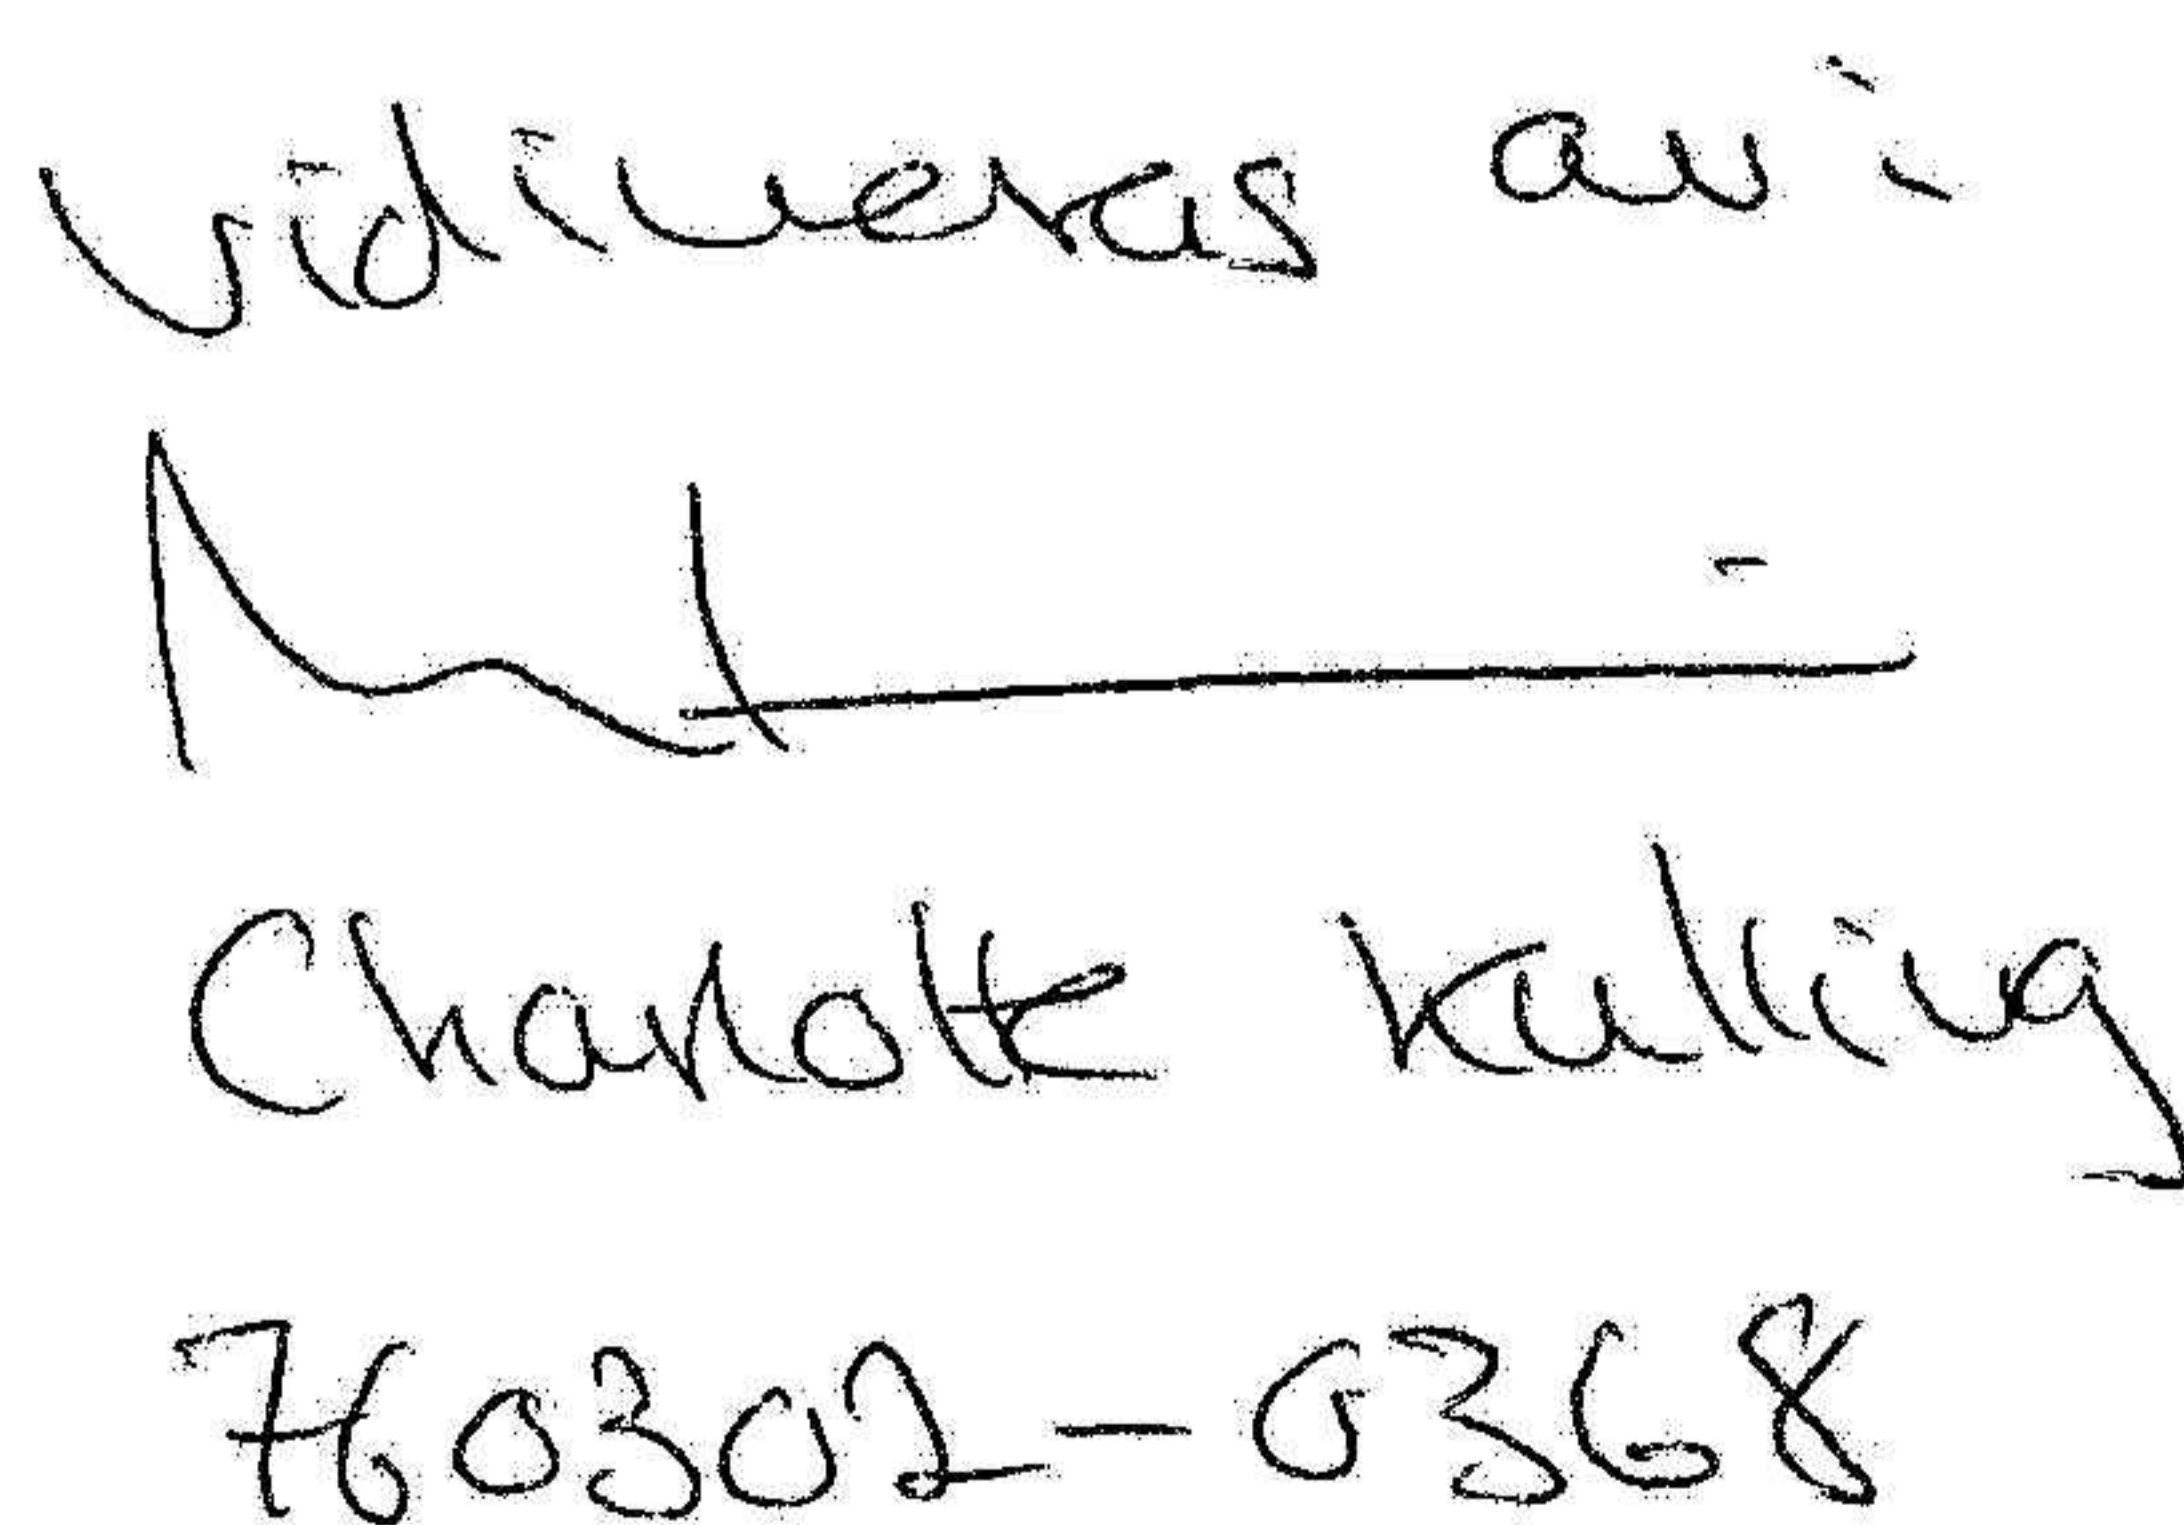 Vidimeras av:
Charlotte Kulling
760302-0368